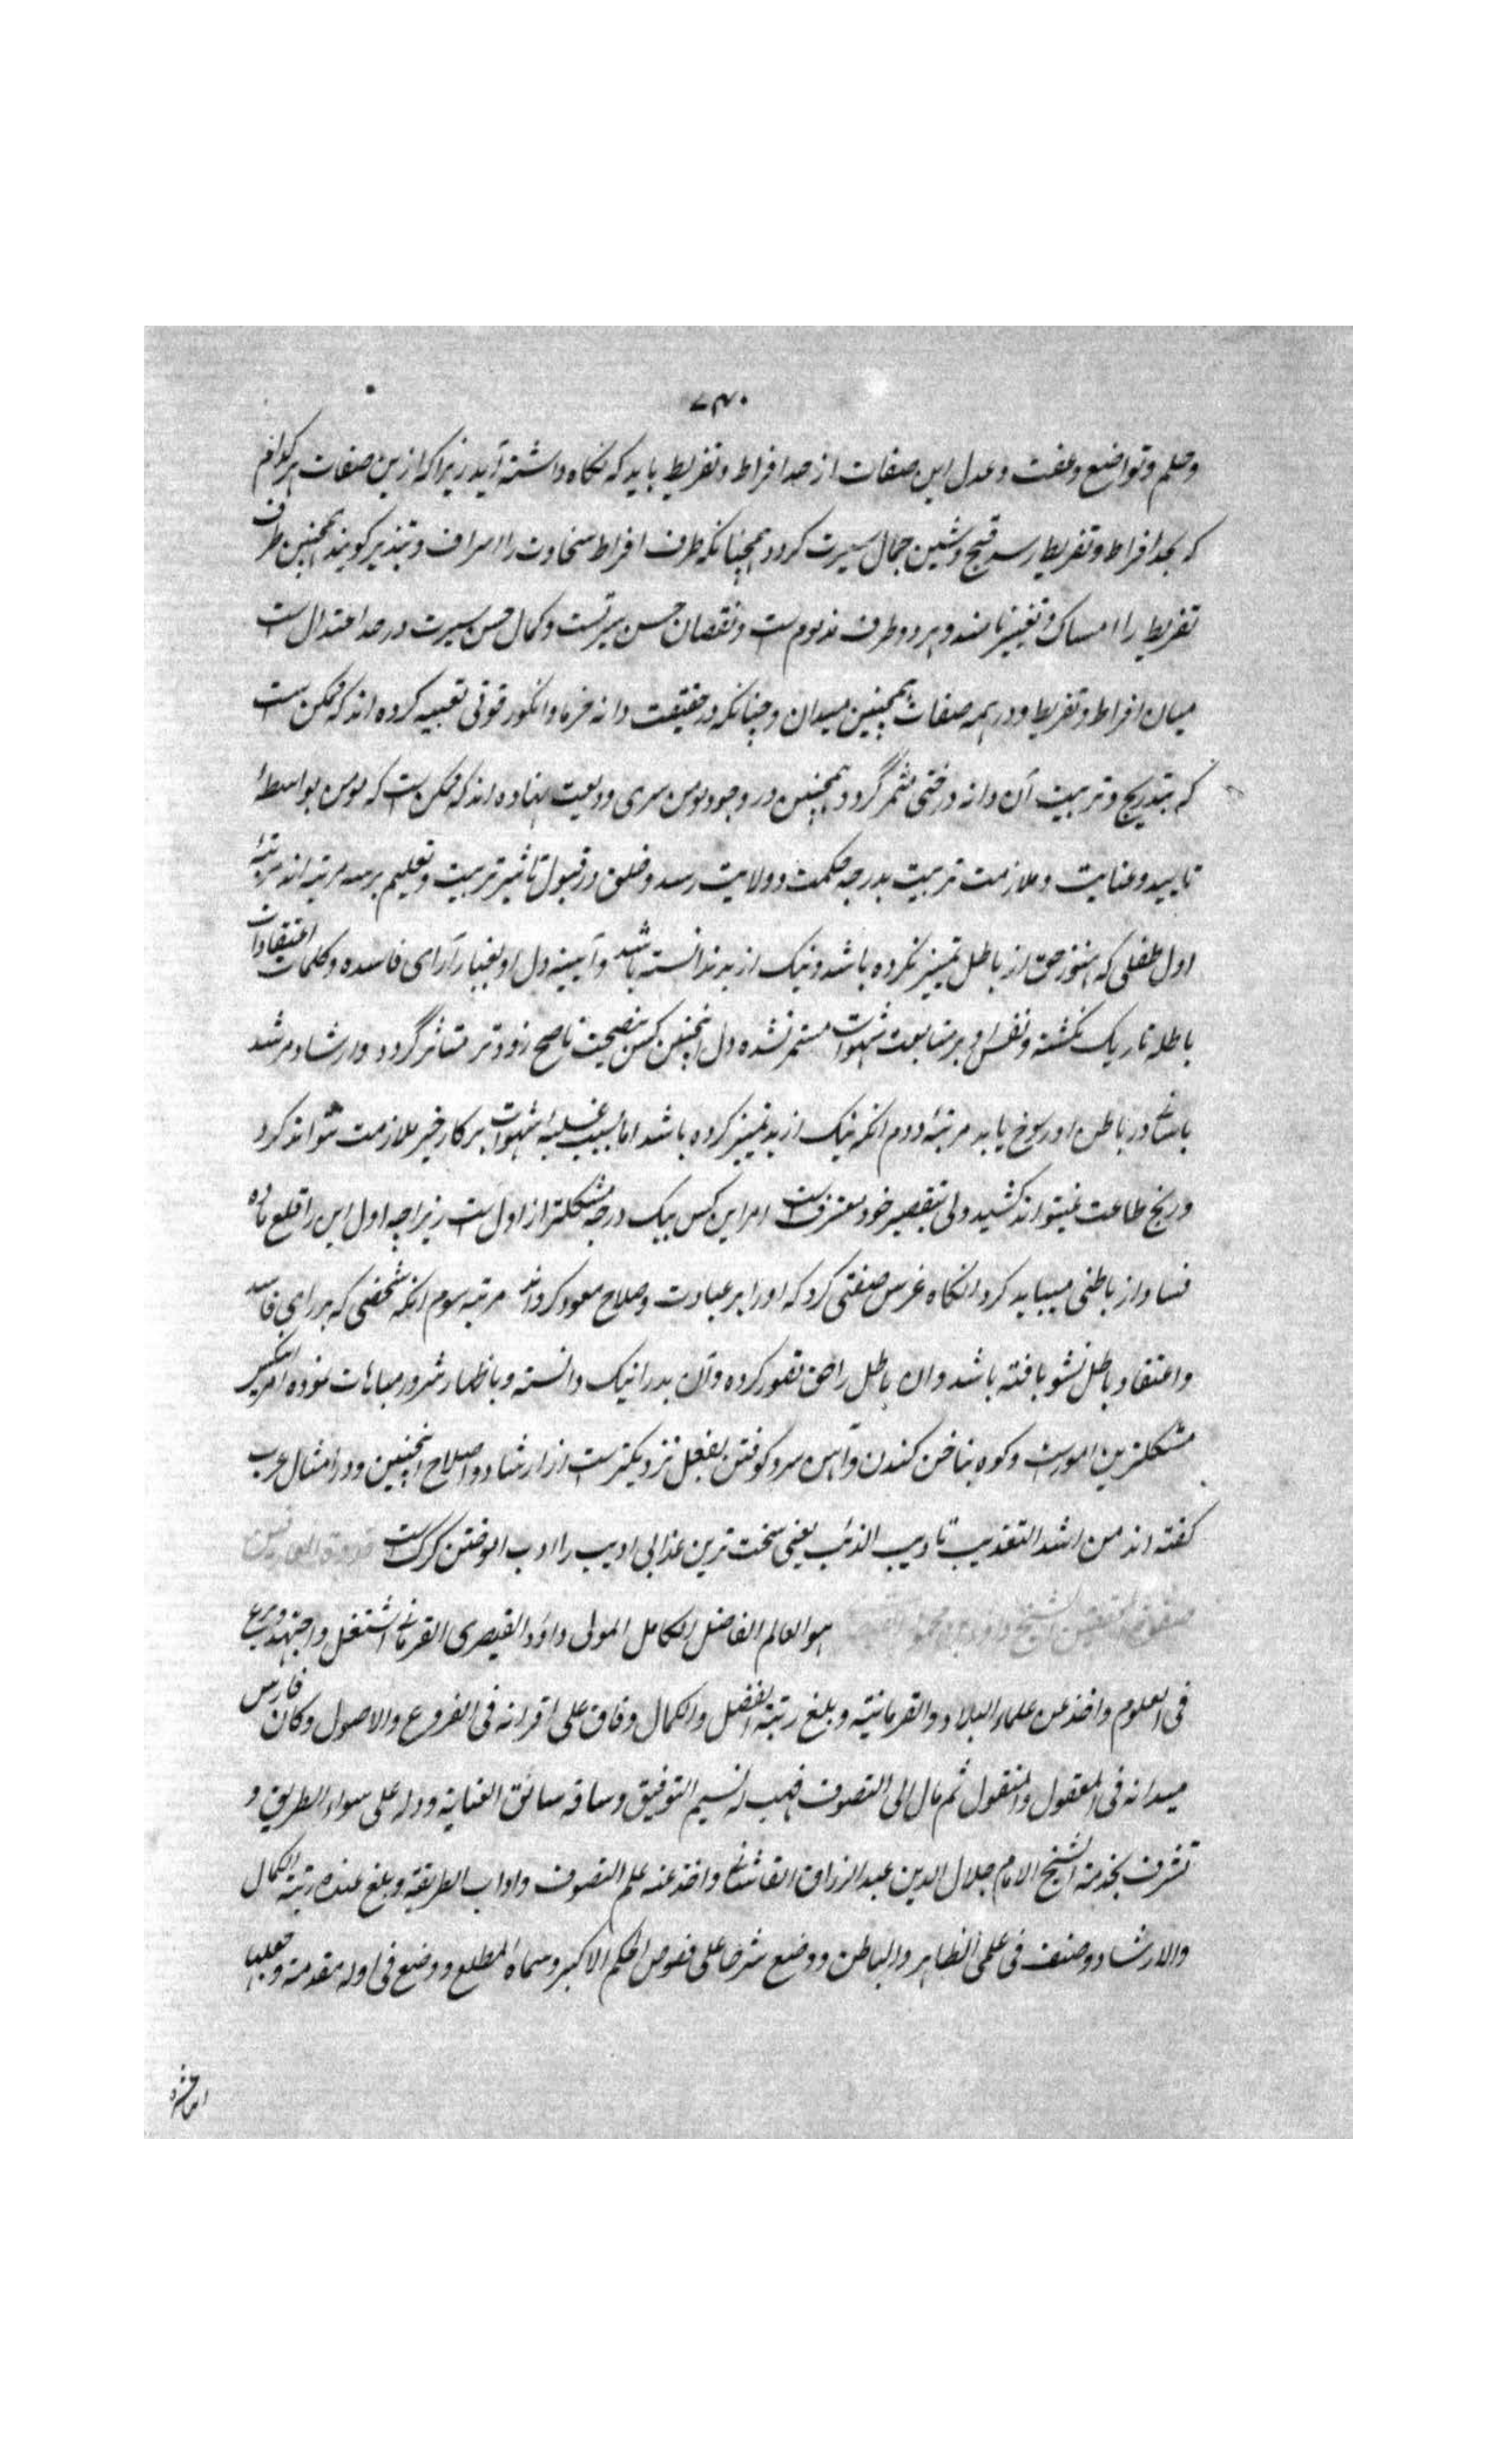 ۷۳۰
وحلم وتواضع وعفت وعدل این صفات از حد افراط وتفریط باید که نکاه داشته آید زیرا که ازین صفات هر کدام
که بحد افراط وتفریط رسد قبح وشین جمال سیرت کردد همچنانکه طرف افراط سخاوت را اسراف وتبذیر کویند همچنین طرف
تفریط را امساک وتقتیر نامند وهر دو طرف مذمومست ونقصان حسن سیرتست وکمال حسن سیرت در حد اعتدال است
میان افراط وتفریط ودر همه صفات همچنین میدان وچنانکه در حقیقت دانه خرما وانکور قوتی تعبیه کرده اند که ممکن است
که بتدریج وتربیت آن دانه درختی مثمر گردد همچنین در وجود مومن سری ودیعت نهاده اند که ممکن است که مومن بواسطهٔ
تایید وعنایت وملازمت تربیت بدرجه حکمت وولایت رسد وخلق در قبول تاثیر تربیت وتعلیم بر سه مرتبه اند مرتبهٔ
اول طفلی که هنوز حق از باطل تمییز نکرده باشد ونیک از بد ندانسته باشد وآیینه دل او بغبار آرای فاسده وکلمات اعتقادات
باطله تاریک نکشته ونفس او بر متابعت شهوات مستمر نشده دل اینچنین کس بنصیحت ناصح زودتر متاثر گردد وارشاد مرشد
باسانی در باطن او رسوخ یابد مرتبهٔ دوم انکه نیک از بد تمییز کرده باشد اما بسبب غلبهٔ شهوات بر کار خیر ملازمت نتواند کرد
ورنج طاعت نمیتواند کشید ولی بتقصیر خود معترفست امر این کس بیک درجه مشکلتر از اول است زیرا چه اول این را قلع ماده
فساد از باطنی میباید کرد انکاه غرس صفتی کرد که اورا بر عبادت وصلاح معود کرداند مرتبه سوم انکه شخصی که بر رای فاسد
واعتقاد باطل نشو یافته باشد وان باطل را حق تصور کرده وآن بد را نیک دانسته وباظهار شرور مباهات نموده امر اینکس
مشکلترین امورست وکوه بناخن کندن وآهن سرد کوفتن بفعل نزدیکترست از ارشاد واصلاح اینچنین ودر امثال عرب
کفته اند من اشد التعذیب تادیب الذئب یعنی سخت ترین عذابی ادیب را ادب اموختن کرکست قدوة العارفین
الشیخ داود بن محمود هو العالم الفاضل الکامل المولی داود القیصری القرمانی اشتغل واجتهد وبرع
فی العلوم واخذ عن علماء البلاد والقرمانیه وبلغ رتبة الفضل والکمال وفاق علی اقرانه فی الفروع والاصول وکان فارس
میدانه فی المعقول والمنقول ثم مال الی التصوف فهب له نسیم التوفیق وساقه سائق العنایة ودله علی سواء الطریق و
تشرف بخدمة الشیخ الامام جلال الدین عبد الرزاق القاشانی واخذ عنه علم التصوف واداب الطریقة وبلغ عنده رتبة الکمال
والارشاد وصنف فی علمی الظاهر والباطن ووضع شرحا علی فصوص الحکم الاکبر وسماه المطلع ووضع فی اوله مقدمة وجعلها